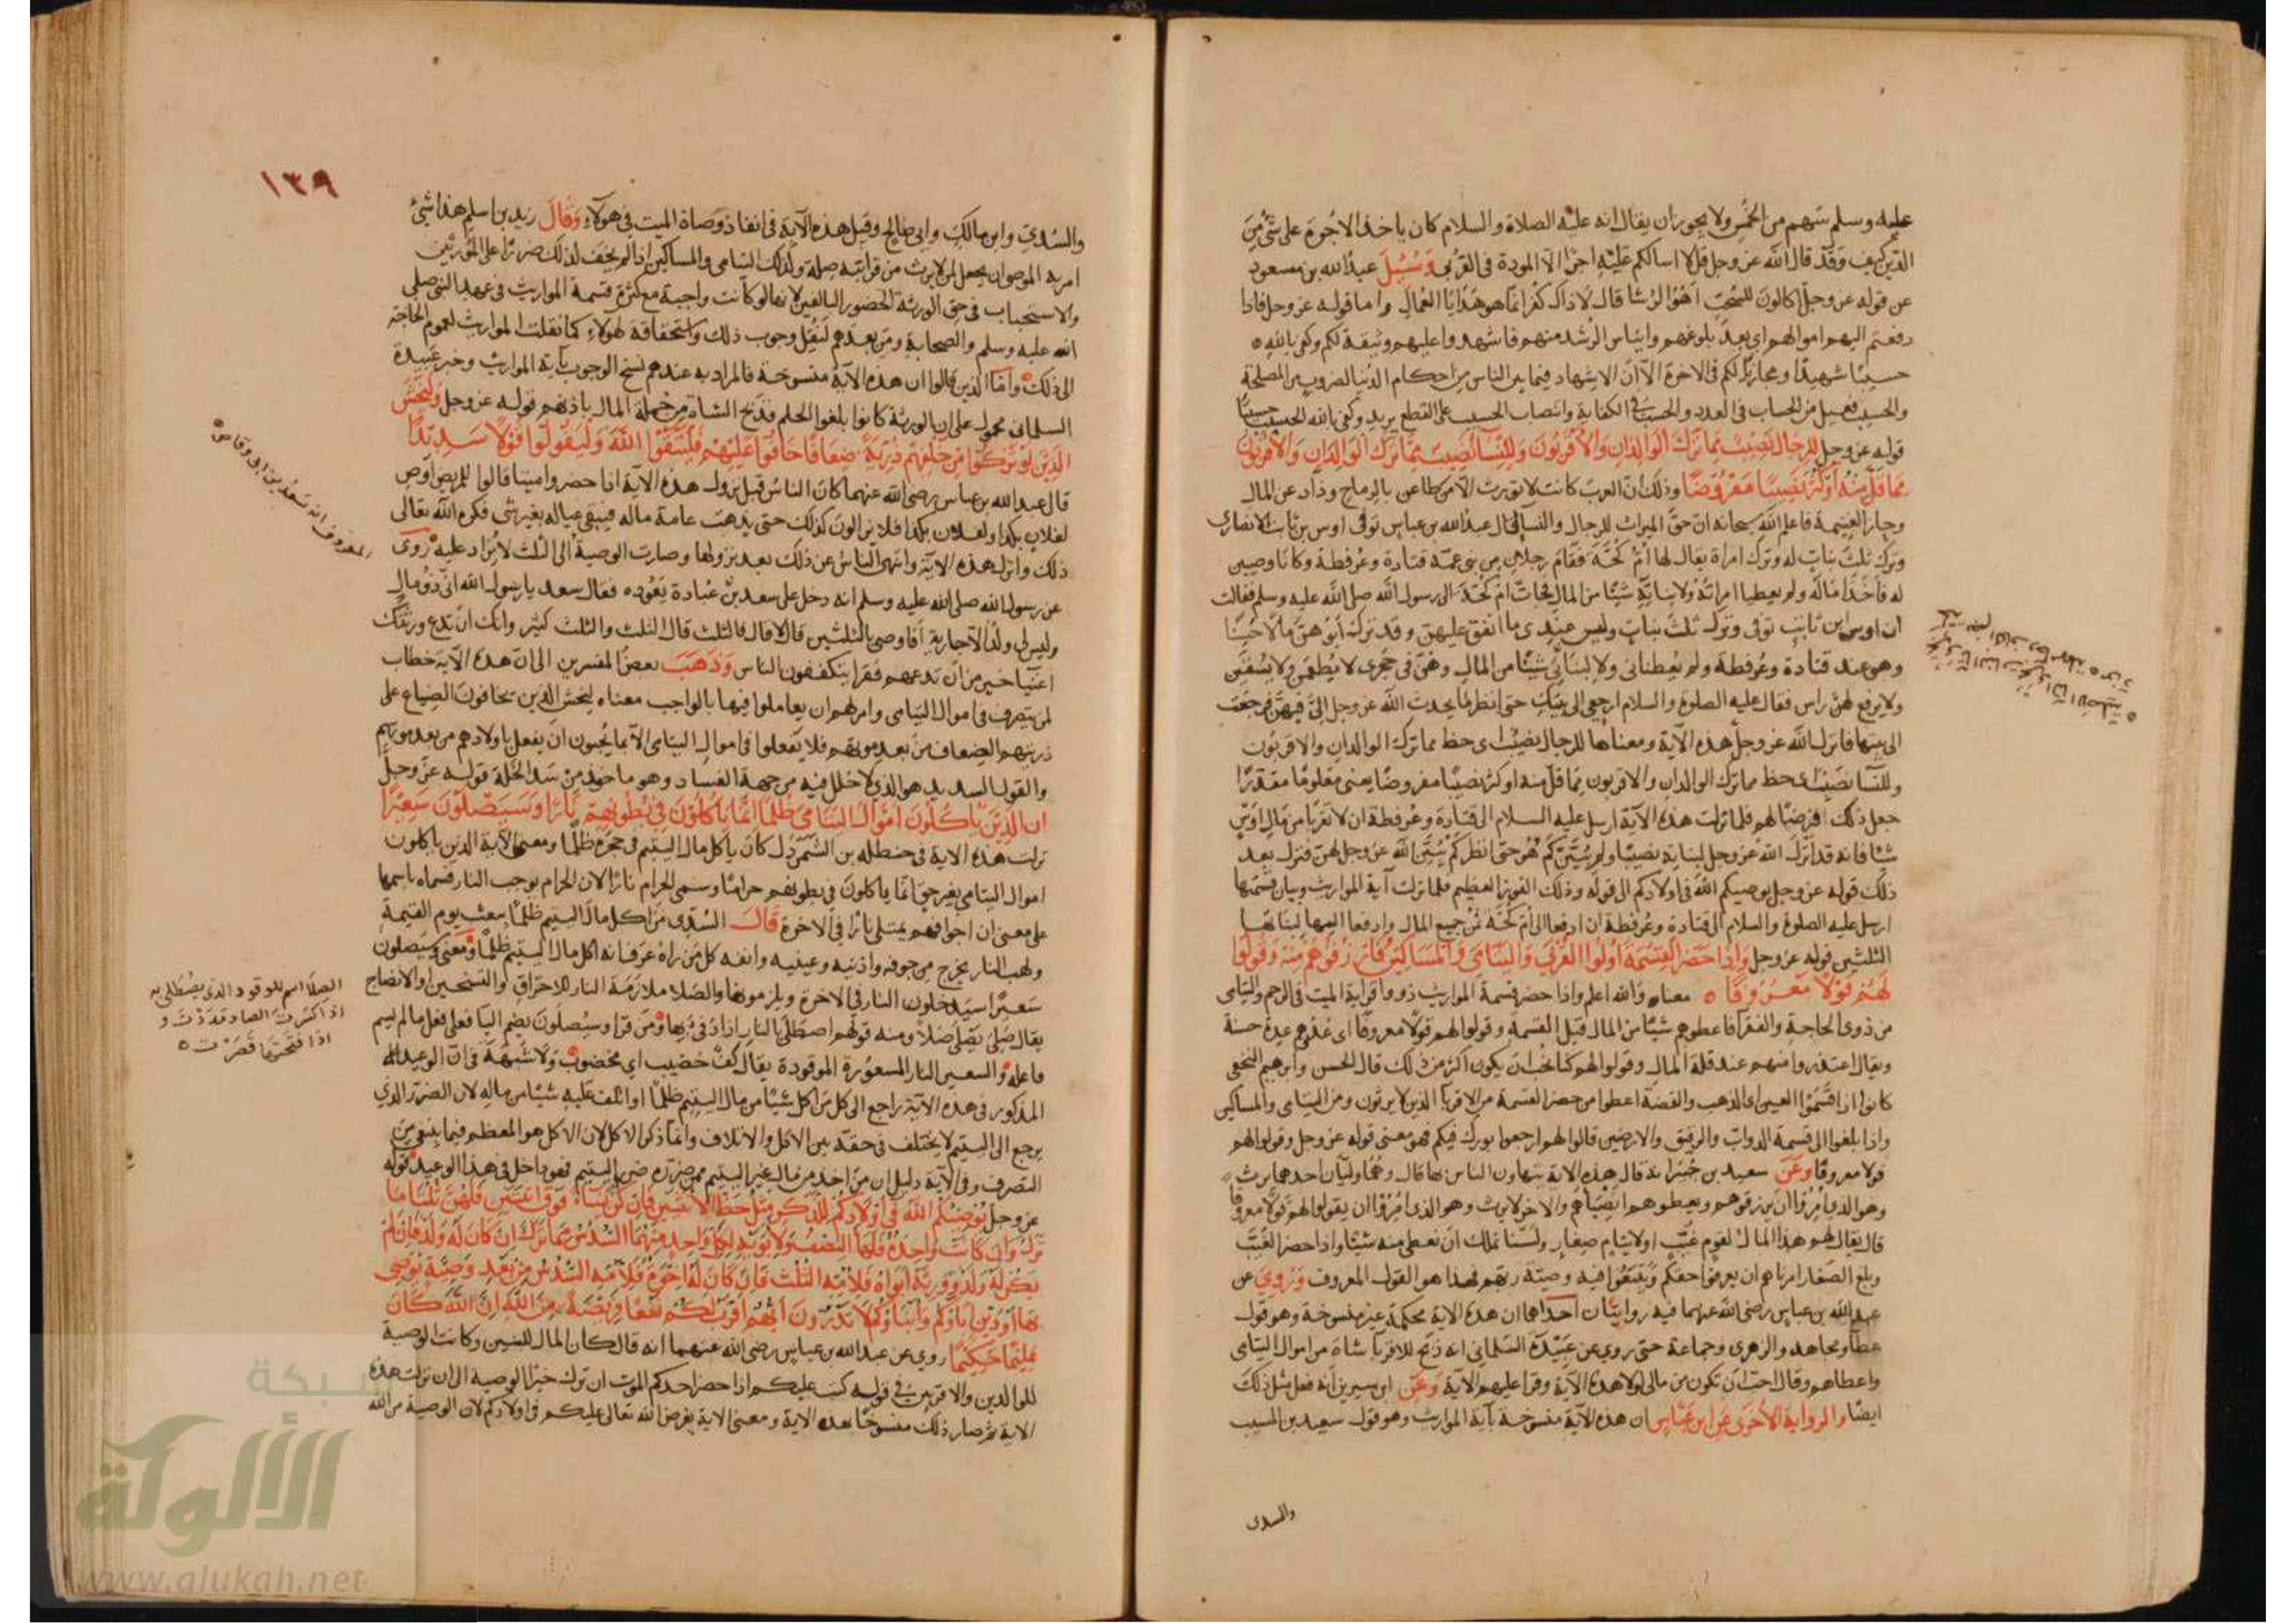 عليه وسلم سهم من الخمس ولا يجوز ان يقال انه عليه الصلاة والسلام كان ياخذ الاجرة على شئ من
الدين كيف وقد قال الله عز وجل قل لا اسالكم عليه اجرا الا المودة في القربى وسئل عبد الله بن مسعود
عن قوله عز وجل اكالون للسحت اهو الرشا قال لا ذاك كفر انما هو هدايا العمال واما قوله عز وجل فاذا
دفعتم اليهم اموالهم اي بعد بلوغهم وايناس الرشد منهم فاشهدوا عليهم وثيقة لكم وكفى بالله
حسيبا شهيدا ومجازيا لكم في الاخرة الا ان الاشهاد فيما بين الناس من احكام الدنيا لضروب من المصلحة
والحسيب فعيل من الحساب في العدد والحسب في الكفاية وانتصاب الحسيب على القطع يريد وكفى بالله الحسيب حسيبا
قوله عز وجل للرجال نصيب مما ترك الوالدان والاقربون وللنسآ نصيب مما ترك الوالدان والاقربون
مما قل منه او كثر نصيبا مفروضا وذلك ان العرب كانت لا تورث الا من طاعن بالرماح وذاد عن المال
وحاز الغنيمة فاعلم الله سبحانه ان حق الميراث للرجال والنسآ قال عبد الله بن عباس توفى اوس بن ثابت الانصارى
وترك ثلث بنات له وترك امراة يقال لها ام كحة فقام رجلان من بنى عمه قتادة وعرفطة وكانا وصيين
له فاخذا ماله ولم يعطيا امراته ولا بناته شيئا من المال فجات ام كحة الى رسول الله صلى الله عليه وسلم فقالت
ان اوس ابن ثابت توفى وترك ثلث بنات وليس عندى ما انفق عليهن وقد ترك ابوهن مالا حسنا
وهو عند قتادة وعرفطة ولم يعطيانى ولا لبناتى شيئا من المال وهن فى حجرى لا يطعمن ولا يسقين
ولا يرفع لهن راس فقال عليه الصلوة والسلام ارجعى الى بيتك حتى انظر ما يحدث الله عز وجل الى فيهن فرجعت
الى بيتها فانزل الله عز وجل هذه الآية ومعناها للرجال نصيب اى حظ مما ترك الوالدان والاقربون
وللنسآ نصيب اى حظ مما ترك الوالدان والاقربون مما قل منه او كثر نصيبا مفروضا يعنى معلوما مقدرا
جعل ذلك فرضا لهم فلما نزلت هذه الآية ارسل عليه السلام الى قتادة وعرفطة ان لا تقربا من مال اوس
شيا فانه قد انزل الله عز وجل لبناته نصيبا ولم يبين كم هو حتى انظر كم يبين الله عز وجل لهن فنزل بعد
ذلك قوله عز وجل يوصيكم الله فى اولادكم الى قوله وذلك الفوز العظيم فلما نزلت آية المواريث وبيان قسمتها
ارسل عليه الصلوة والسلام الى قتادة وعرفطة ان ادفعا الى ام كحة ثمن جميع المال وادفعا اليها لبناتها
الثلثين قوله عز وجل واذا حضر القسمة اولوا القربى واليتامى والمساكين فارزقوهم منه وقولوا
لهم قولا معروفا معناه والله اعلم واذا حضر قسمة المواريث ذووا قرابة الميت فى الرحم واليتامى
من ذوى الحاجة والفقرآ فاعطوهم شيئا من المال قبل القسمة وقولوا لهم قولا معروفا اى عدوهم عدة حسنة
ويقال اعتذروا منهم عند قلة المال وقولوا لهم كنا نحب ان يكون اكثر من ذلك قال الحسن وابرهيم النخعى
كانوا اذا قسموا العين اى الذهب والفضة اعطوا من حضر القسمة من الاقربآ الذين لا يرثون ومن اليتامى والمساكين
واذا بلغوا الى قسمة الدواب والرقيق والارضين قالوا لهم ارجعوا بورك فيكم فهو معنى قوله عز وجل وقولوا لهم
قولا معروفا وعن سعيد بن جبير انه قال هذه الاية يتهاون الناس بها قال وهما وليان احدهما يرث
وهو الذى امروا ان يرزقوهم ويعطوهم انصباهم والاخر لا يرث وهو الذى امروا ان يقولوا لهم قولا معروفا
قال يقال لهم هذا المال لقوم غيب او لايتام صغار ولسنا نملك ان نعطى منه شيئا واذا حضر الغيب
وبلغ الصغار امرناهم ان يعرفوا حقكم ويتبعوا فيه وصية ربهم فهذا هو القول المعروف وروى عن
عبد الله بن عباس رضى الله عنهما فيه روايتان احداهما ان هذه الاية محكمة غير منسوخة وهو قول
عطآ ومجاهد والزهرى وجماعة حتى روي عن عبيدة السلمانى انه ذبح للاقربآ شاة من اموال اليتامى
واعطاهم وقال احب ان تكون من مالى لولا هذه الآية وقرا عليهم الآية وعن ابن سيرين انه فعل مثل ذلك
ايضا والرواية الاخرى عن ابن عباس ان هذه الآية منسوخة بآية المواريث وهو قول سعيد بن المسيب
والسدى
١٣٩
والسدي وابن مالك وابى صالح وقيل هذه الآية فى انفاذ وصاة الميت فى هولآء وقال زيد بن اسلم هذا شئ
امر به الموصى ان يجعل لمن لا يرث من قرابته صلة وكذلك اليتامى والمساكين اذا لم يخف لذلك ضررا على المورثين
والاستحباب فى حق الورثة الحضور البالغين لانها لو كانت واجبة مع كثرة قسمة المواريث فى عهد النبى صلى
الله عليه وسلم والصحابة ومن بعدهم لنقل وجوب ذلك واستحقاقه لهولاء كما نقلت المواريث لعموم الحاجة
الى ذلك واما الذين قالوا ان هذه الآية منسوخة فالمراد به عندهم نسخ الوجوب بآية المواريث وخبر عبيدة
السلمانى محمول على ان الورثة كانوا بلغوا الحلم فذبح الشاة من جملة المال باذنهم قوله عز وجل وليخش
الذين لو تركوا من خلفهم ذرية ضعافا خافوا عليهم فليتقوا الله وليقولوا قولا سديدا
قال عبد الله بن عباس رضى الله عنهما كان الناس قبل نزول هذه الآية اذا حضروا ميتا قالوا للمريض اوص
لفلان بكذا ولفلان بكذا فلا يزالون كذلك حتى يذهب عامة ماله فيبقى عياله بغير شى فكره الله تعالى
ذلك وانزل هذه الآية وانتهى الناس عن ذلك بعد نزولها وصارت الوصية الى الثلث لا يزاد عليه روى
عن رسول الله صلى الله عليه وسلم انه دخل على سعد بن عبادة يعوده فقال سعد يا رسول الله انى ذو مال
وليس لى ولد الا جارية أفاوصى بالثلثين قال لا قال فالثلث قال الثلث والثلث كثير وانك ان تدع ورثتك
اغنيآ خير من ان تدعهم فقرآ يتكففون الناس وذهب بعض المفسرين الى ان هذه الآية خطاب
لمن يتصرف فى اموال اليتامى وامر لهم ان يعاملوا فيها بالواجب معناه ليخش الذين يخافون الضياع على
ذريتهم الضعاف من بعد موتهم فلا يفعلوا فى اموال اليتامى الا بما يحبون ان يفعل باولادهم من بعد موتهم
والقول السديد هو الذى لا خلل فيه من جهة الفساد وهو ماخوذ من سد الخلة قوله عز وجل
ان الذين ياكلون اموال اليتامى ظلما انما ياكلون فى بطونهم نارا وسيصلون سعيرا
نزلت هذه الاية فى حنظلة بن الشمردل كان ياكل مال اليتيم فى حجره ظلما ومعنى الآية الذين ياكلون
اموال اليتامى بغير حق انما ياكلون فى بطونهم حراما وسمى الحرام نارا لان الحرام يوجب النار فسماه باسمها
على معنى ان اجوافهم يمتلى نارا فى الاخرة قال السدى من اكل مال اليتيم ظلما يبعث يوم القيمة
ولهب النار يخرج من جوفه واذنيه وعينيه وانفه كل من راه عرف انه اكل مال اليتيم ظلما ومعنى وسيصلون
سعيرا سيدخلون النار فى الاخرة ويلزمونها والصلا ملازمة النار للاحتراق والتسخين او الانضاج
يقال صلى يصلى صلا ومنه قولهم اصطلى بالنار اذا دفى بها ومن قرا وسيصلون بضم اليآ فعلى فعل ما لم يسم
فاعله والسعير النار المسعورة الموقودة يقال كف خضيب اي مخضوب ولا شبهة فى ان الوعيد
المذكور فى هذه الآية راجع الى كل من اكل شيئا من مال اليتيم ظلما او اتلف عليه شيئا من ماله لان الضرر الذي
يرجع الى اليتيم لا يختلف فى حقه بين الاكل والاتلاف وانما ذكر الاكل لان الاكل هو المعظم فيما يبتغى من
التصرف وفى الآية دليل ان من اخذ من مال غير اليتيم فهو داخل فى هذا الوعيد قوله
عز وجل يوصيكم الله فى اولادكم للذكر مثل حظ الانثيين فان كن نسآء فوق اثنتين فلهن ثلثا ما
ترك وان كانت واحدة فلها النصف ولابويه لكل واحد منهما السدس مما ترك ان كان له ولد فان لم
يكن له ولد وورثه ابواه فلامه الثلث فان كان له اخوة فلامه السدس من بعد وصية يوصى
بها او دين اباؤكم وابناؤكم لا تدرون ايهم اقرب لكم نفعا فريضة من الله ان الله كان
عليما حكيما روي عن عبد الله بن عباس رضى الله عنهما انه قال كان المال للبنين وكانت الوصية
للوالدين والاقربين فى قوله كتب عليكم اذا حضر احدكم الموت ان ترك خيرا الوصية الى ان نزلت هذه
الاية ثم صار ذلك منسوخا بهذه الاية ومعنى الاية يفرض الله تعالى عليكم فى اولادكم لان الوصية من الله
المعروف انه سعد بن ابى وقاص
الصلا اسم للوقود الذى يصطلى به
اذا كسرت الصاد مددت و
اذا فتحتها قصرت
شبكة
الألوكة
www.alukah.net